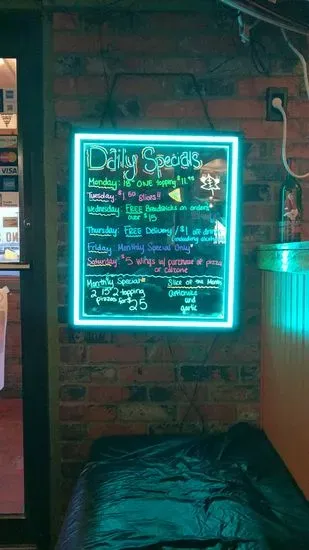 Daily Specials
Monday: 15" ONE topping $11.95
Tuesday: $1.50 slices!!
Wednesday: FREE Breadsticks on orders
over $15
Thursday: FREE Delivery / $1 off drinks
Friday: Monthly Special Only
Saturday: $5 wings w/ purchase of pizza
or calzone
Monthly Special
2 15" 2-topping
pizzas for $25
Slice of the Month
artichoke
and
garlic
VISA